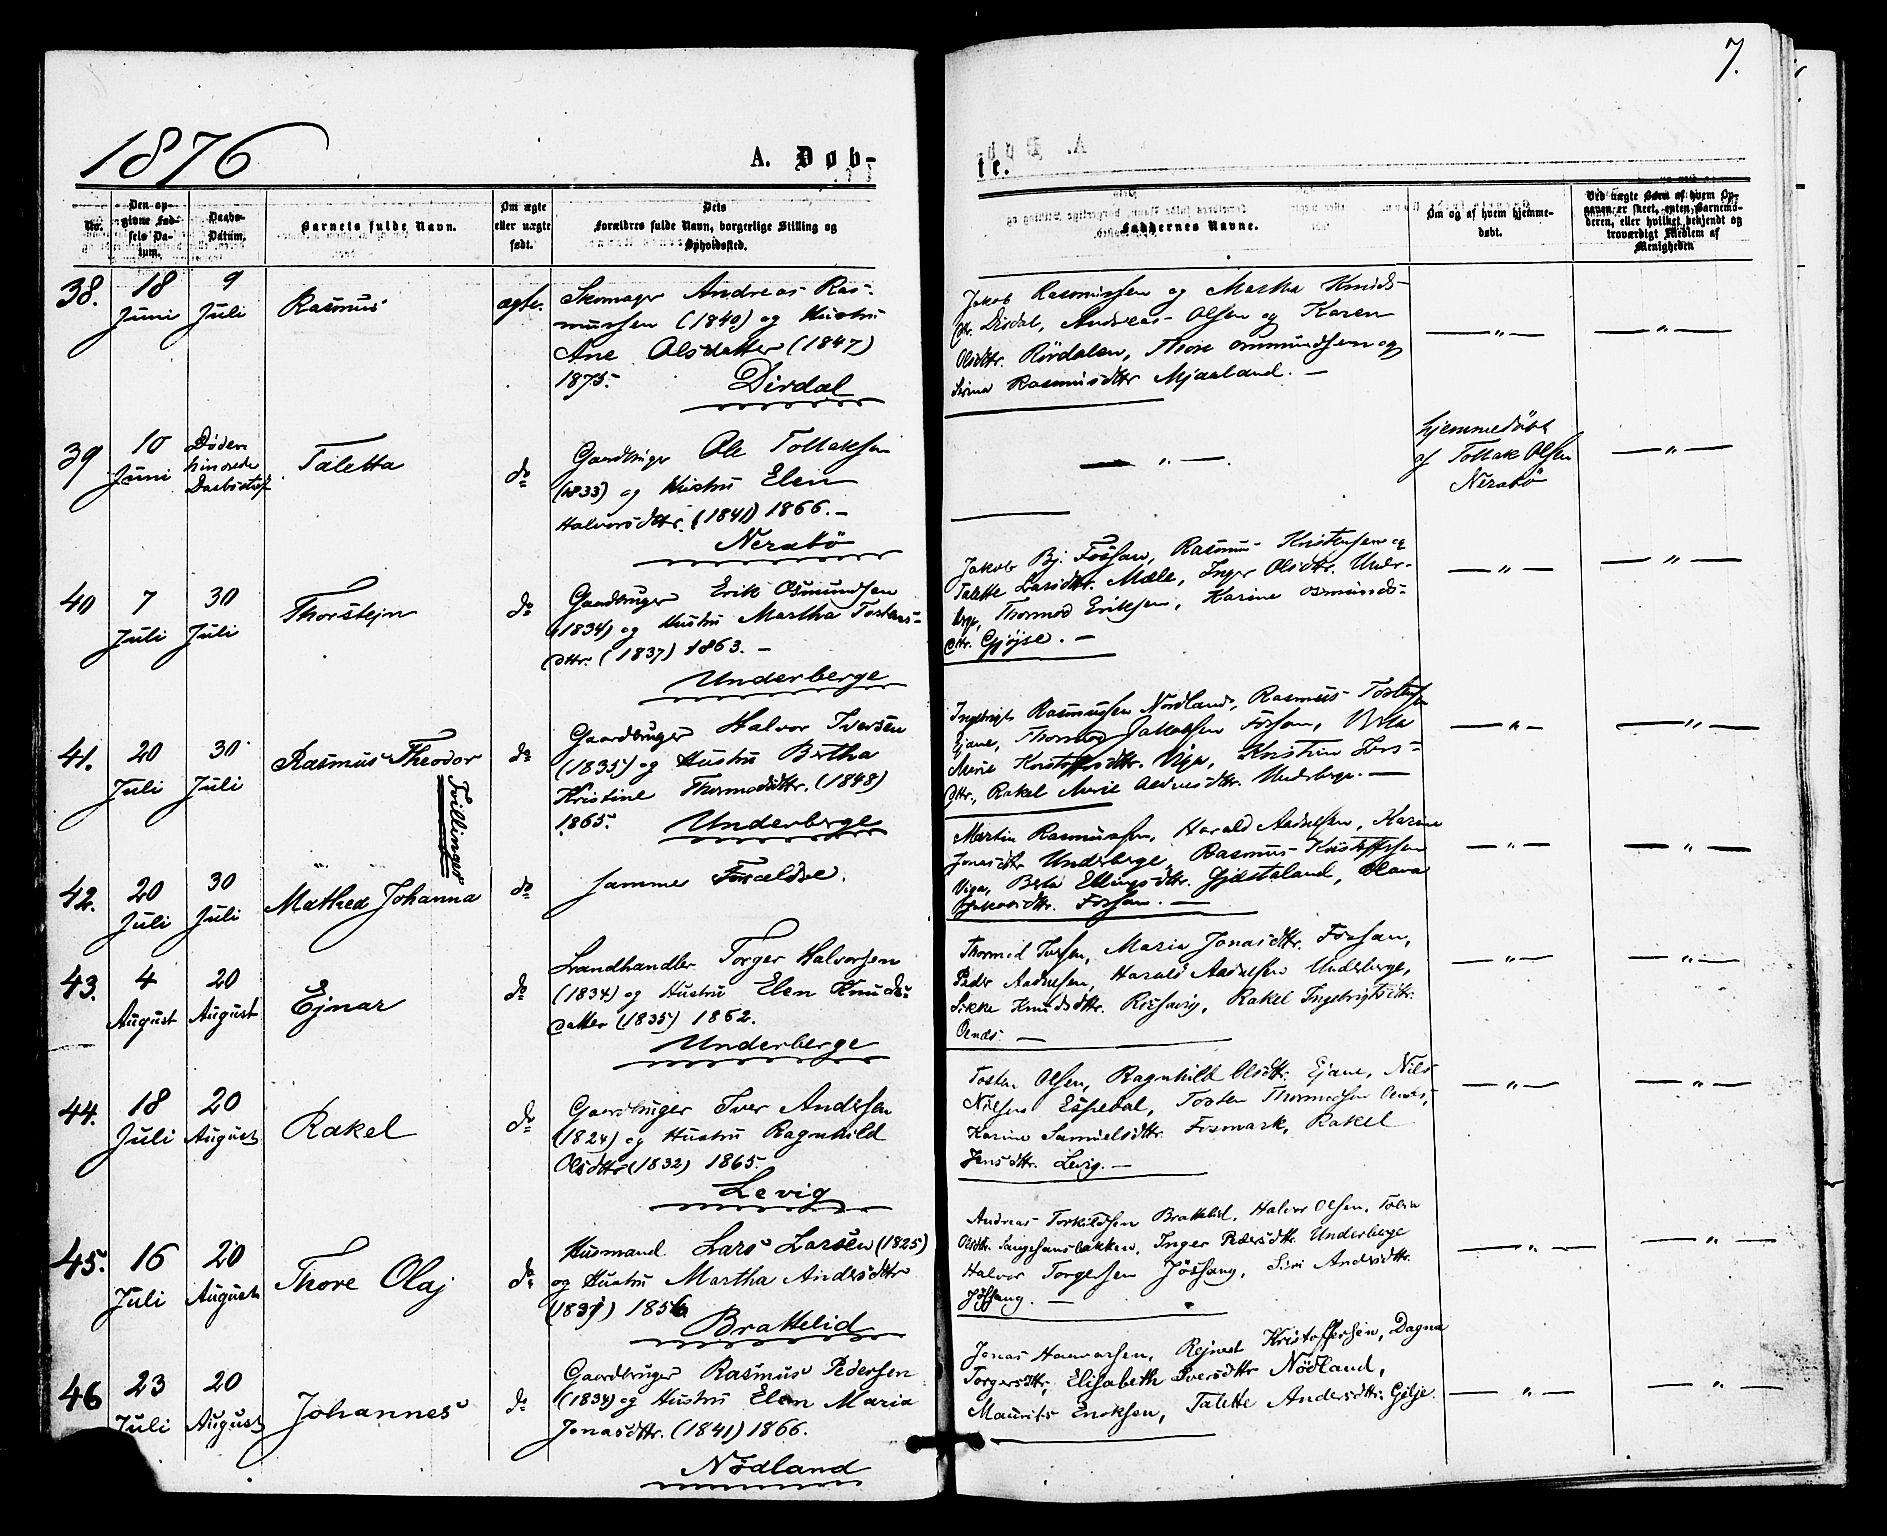 7.
1876
A. Døb-
te.
No.
Den opgivne Fødsels Datum.
Daabs-Datum.
Barnets fulde Navn.
Om ægte eller uægte født.
Dets Forældres fulde Navn, borgerlige Stilling og Opholdssted.
Faddernes Navne.
Om og af hvem hjemmedøbt.
Ved uægte Børn af hvem Opgaven er skeet, enten Barnemoderen, eller hvilket bekjendt og troværdigt Medlem af Menigheden
38.
18 Juni
9 Juli
Rasmus
ægte.
Skomager Andreas Ras-
mussen (1840) og Hustru
Ane Olsdatter (1847)
1875.
Dirdal
Jakob Rasmussen og Martha Knuds-
dtr. Dirdal, Andreas Olsen og Karen
Olsdtr. Rördalen, Thore Ommundsen og
Sirina Rasmusdtr Mjaaland. —
— „ —
— „ —
39
10 Juni
Døden
hindrede
Daabsstadf.
Taletta
do
Gaardbruger Ole Tollaksen
(1833) og Hustru Elen
Halvorsdtr. (1841) 1866. —
Nerabö
— „ —.
hjemmedöbt
af Tollak Olsen
Nerabö
— „ —
40
7 Juli
30 Juli
Thorstejn
do
Gaardbruger Erik Osmundsen
(1834) og Hustru Martha Tostens-
dtr. (1837) 1863. —
Underberge
Jakob Bj. Fossan, Rasmus Kristensen og
Talette Larsdtr. Mæle, Inger Olsdtr. Under-
berge, Thormod Eriksen, Karine Osmunds-
dtr. Gjöjse. —
— „ —
— „ —
41.
20 Juli
30 Juli
Rasmus Theodor
Tvillinger
do
Gaardbruger Halvor Iversen
(1835) og Hustru Bertha
Kristine Thormodsdtr. (1848)
1865.
Underberge
Ingebrigt Rasmussen Nordland, Rasmus Tostensen
Ejane, Thormod Jakobsen Fossan,
Marie Kristoffersdtr. Viga, Kristine Ivers-
dtr., Rakel Marie Aadnesdtr. Underberge. —
— „ —
— „ —
42.
20 Juli
30 Juli
Mathea Johanna
do
samme Forældre.
Martin Rasmussen, Harald Aadnesen, Karine
Jonasdtr Underberge, Rasmus Kristoffersen
Viga, Berta Ellingsdtr. Gjilstaland, Olava
Jakobsdtr. Fossan. —
— „ —
— „ —
43.
4 August
20 August
Ejnar
do
Landhandler Torger Halvorsen
(1834) og Hustru Elen Knuds-
datter (1835) 1862.
Underberge
Thormod Iversen, Maria Jonasdtr. Fossan,
Peder Aadnesen, Harald Aadnesen Underberge,
Sikke Knudsdtr. Rossavig, Rakel Ingebrigtsdtr.
Oenæs. —
— „ —
— „ —
44.
18 Juli
20 August
Rakel
do
Gaardbruger Iver Andersen
(1824) og Hustru Ragnhild
Olsdtr (1832) 1865.
Levig
Tosten Olsen, Ragnhild Olsdtr. Ejane, Nils
Nilsen Espedal, Tosten Thormodsen Oenæs,
Karine Samuelsdtr. Fosmark, Rakel
Jensdtr. Levig. —
— „ —
— „ —
45.
16 Juli
20 August
Thore Olaj
do
Husmand Lars Larsen (1825)
og Hustru Martha Andersdtr
(1831) 1856
Brattelid
Andreas Torkildsen Brattelid, Halvor Olsen,
Olsdtr. Langesandbakken, Inger Pedersdtr. Underberge
Halvor Torgersen Jössang, Siri Andersdtr.
Jössang. —
— „ —
— „ —
46
23 Juli
20 August
Johannes
do
Gaardbruger Rasmus Pedersen
(1834) og Hustru Elen Maria
Jonasdtr. (1841) 1866.
Nødland
Jonas Haavarsen, Rejnert Kristoffersen, Dagna
Torgersdtr, Elisabeth Iversdtr Nödland,
Maurits Enoksen, Talette Andersdtr. Gilje.
— „ —
— „ —